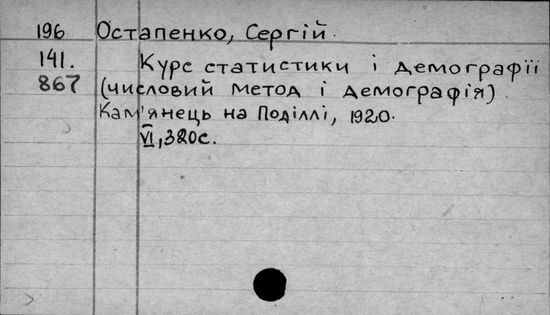 196 Остапенко, Сергій.
141. Курс статистики і демографії
867 (числовий метод і демографія).
Кам'янець на Поділлі, 1920.
VI, 380с.